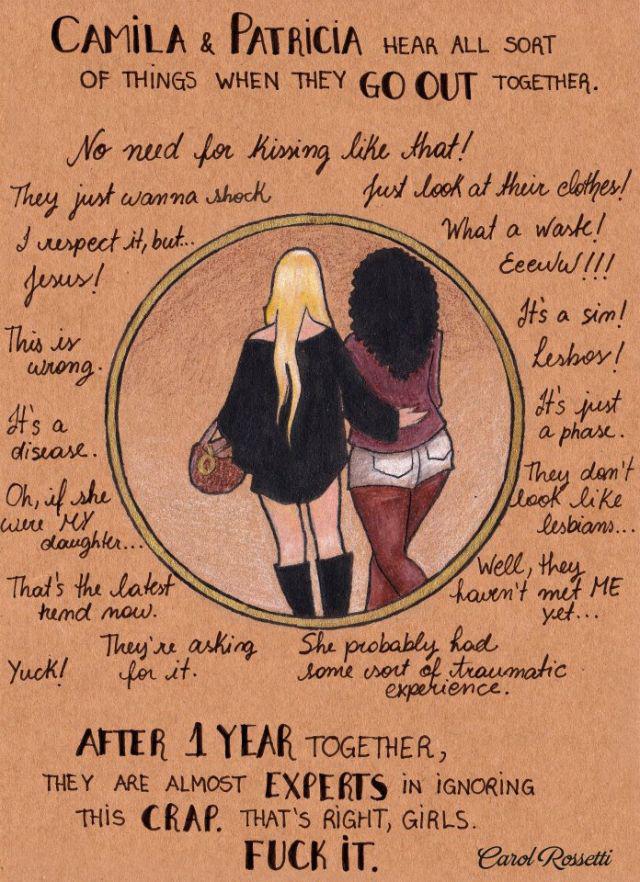 CAMILA & PATRICIA HEAR ALL SORT
OF THINGS WHEN THEY GO OUT TOGETHER.
No need for kissing like that!
They just wanna shock
Just look at their clothes!
I respect it, but...
What a waste!
Jesus!
Eeeww!!!
It's a sin!
This is
wrong.
Lesbos!
It's a
disease.
It's just
a phase.
Oh, if she
were MY
daughter...
They don't
look like
lesbians...
That's the latest
trend now.
Well, they
haven't met ME
yet...
Yuck!
They're asking
for it.
She probably had
some sort of traumatic
experience.
AFTER 1 YEAR TOGETHER,
THEY ARE ALMOST EXPERTS IN IGNORING
THIS CRAP. THAT'S RIGHT, GIRLS.
FUCK IT.
Carol Rossetti